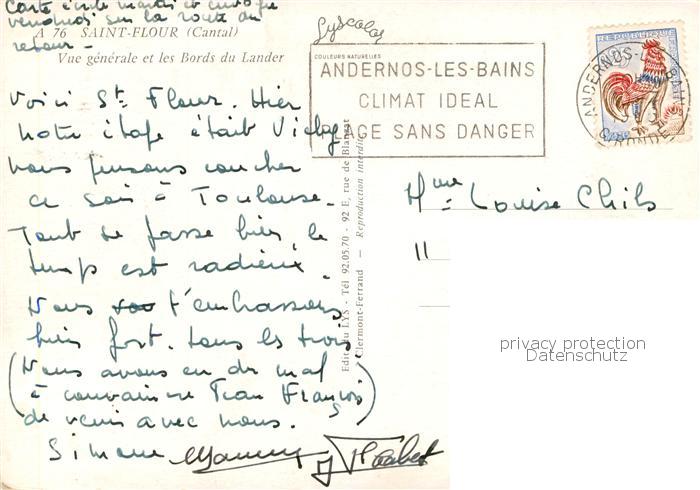 Carte écrite mardi et envoyée
vendredi sur la route du
retour -
A 76 SAINT-FLOUR (Cantal)
Vue générale et les Bords du Lander
Voici St Flour. Hier
notre étape était Vichy
nous pensons coucher
ce soir à Toulouse.
Tout se passe bien, le
temps est radieux.
Nous t'embrassons
bien fort. tous les trois
(Nous avons eu du mal
à convaincre Jean François
de venir avec nous.)
Simone
Lyscolor
COULEURS NATURELLES
ANDERNOS-LES-BAINS
CLIMAT IDEAL
PLAGE SANS DANGER
REPUBLIQUE
ANDERNOS-L BAINS
GIRONDE
Mme Louise Chils
11
Edit. du LYS - Tél 92.05.70 - 92 E, rue de Blanzat
Clermont-Ferrand - Reproduction interdite
privacy protection
Datenschutz